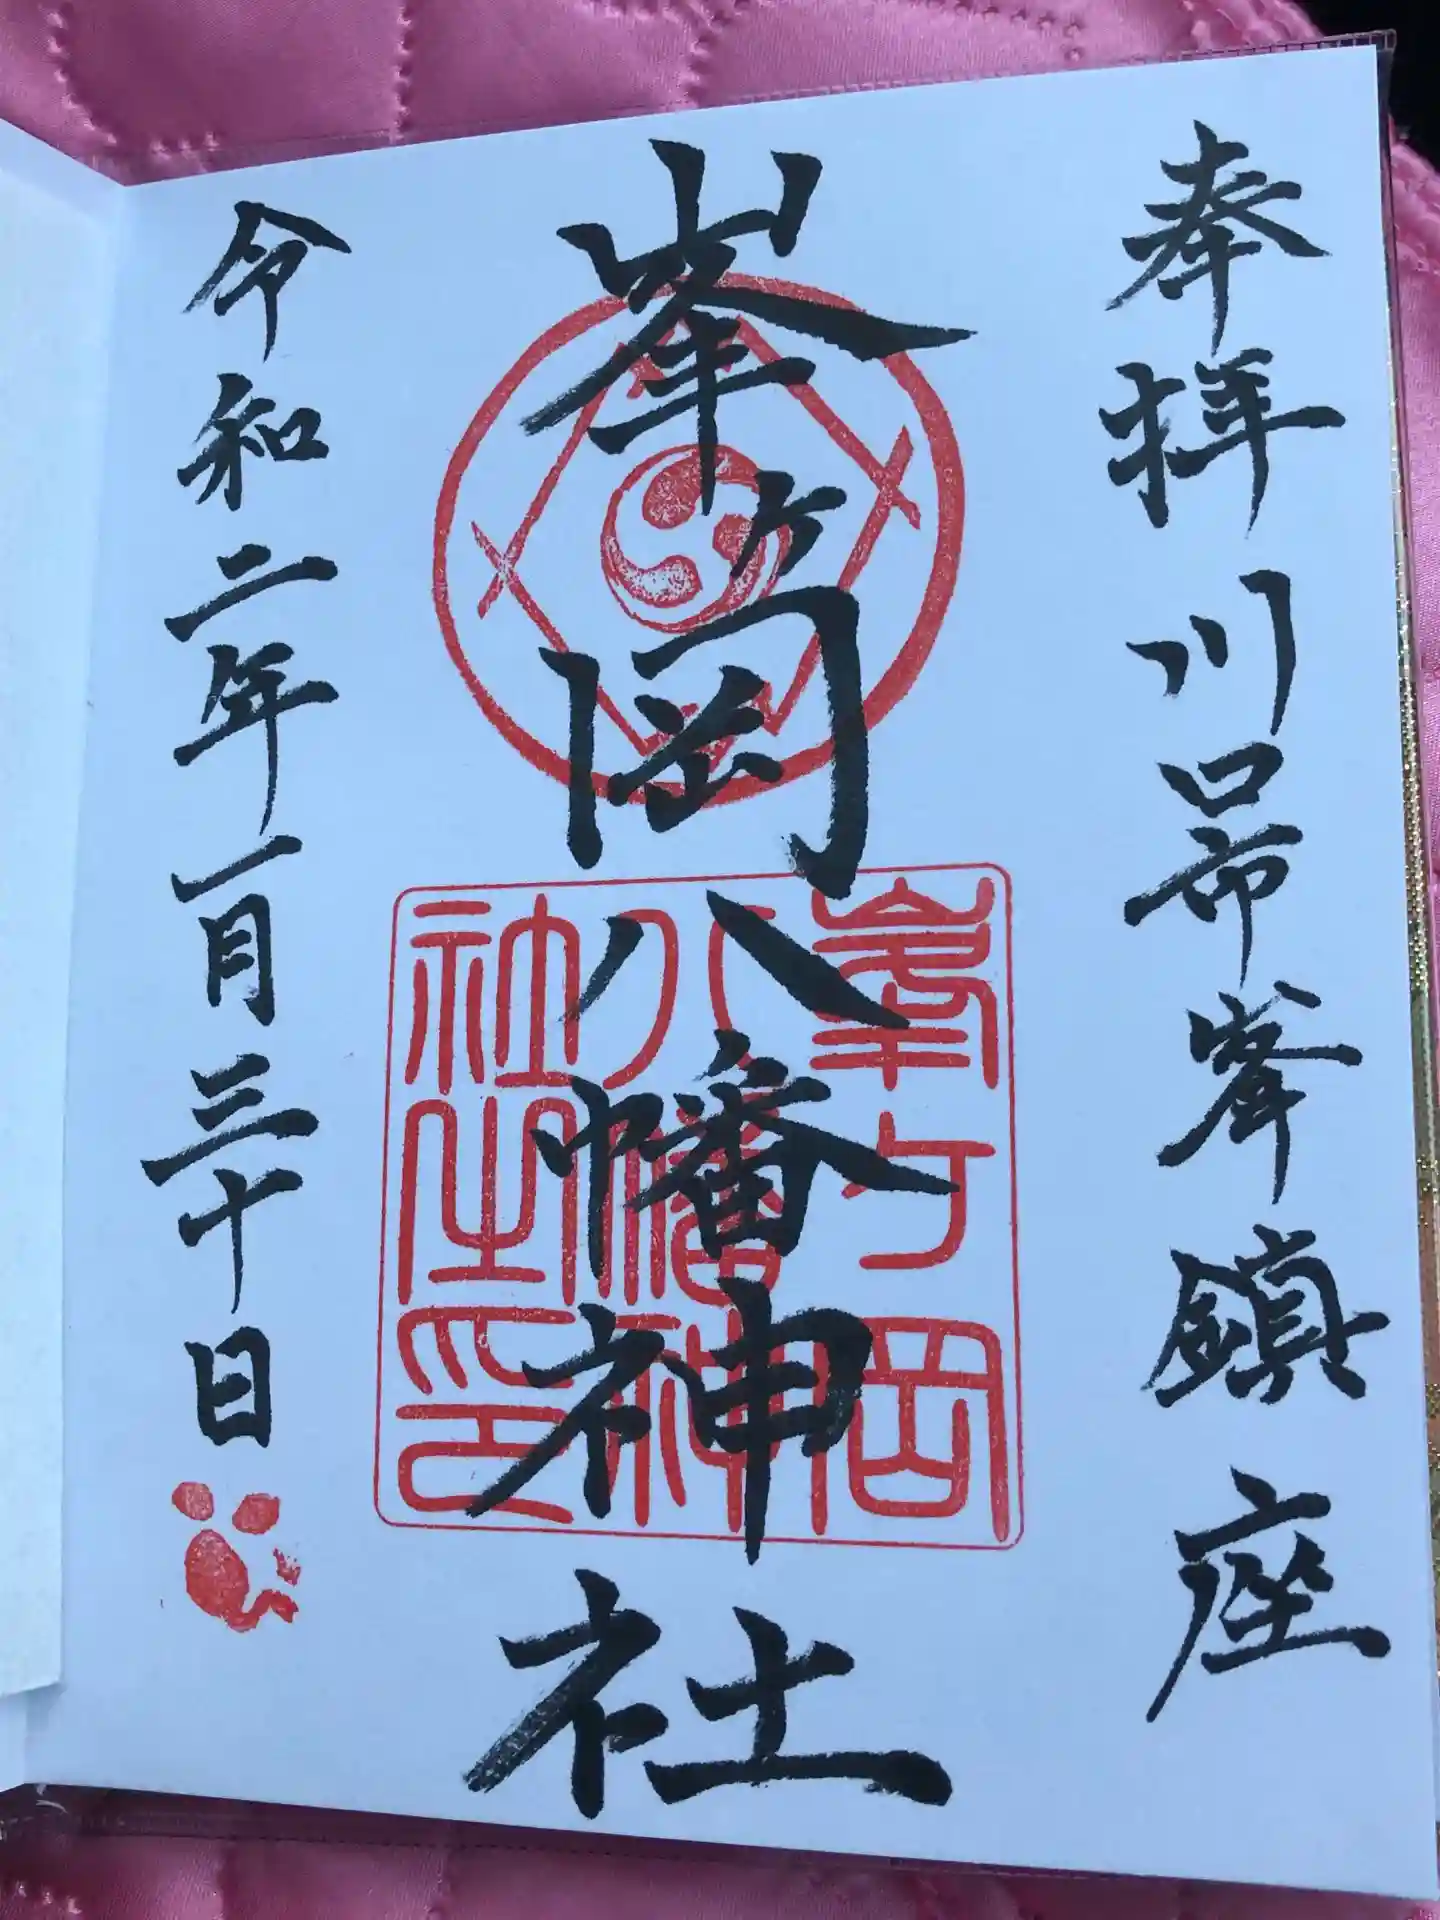 奉拝 川口市峯鎮座
峯ヶ岡八幡神社
令和二年一月三十日
峯ヶ岡
八幡神
社之印